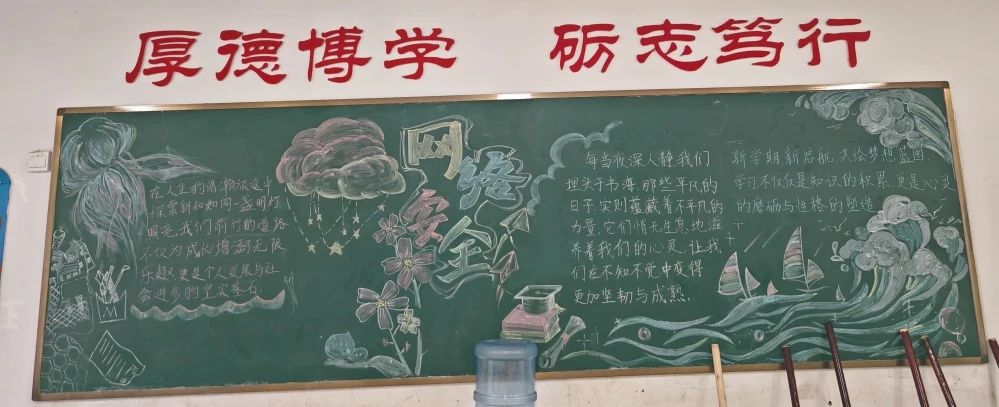 厚德博学 砺志笃行
在人生的浩瀚旅途中
探索新知如同一盏明灯
照亮我们前行的道路
不仅为成长增添无限
乐趣更是个人发展与社
会进步的坚实基石.
网络
安全
每当夜深人静,我们
埋头于书海,那些平凡的
日子,实则蕴藏着不平凡的
力量,它们悄无生息地滋
养着我们的心灵,让我
们在不知不觉中变得
更加坚韧与成熟.
新学期新启航,共绘梦想蓝图.
学习不仅仅是知识的积累,更是心灵
的磨砺与性格的塑造